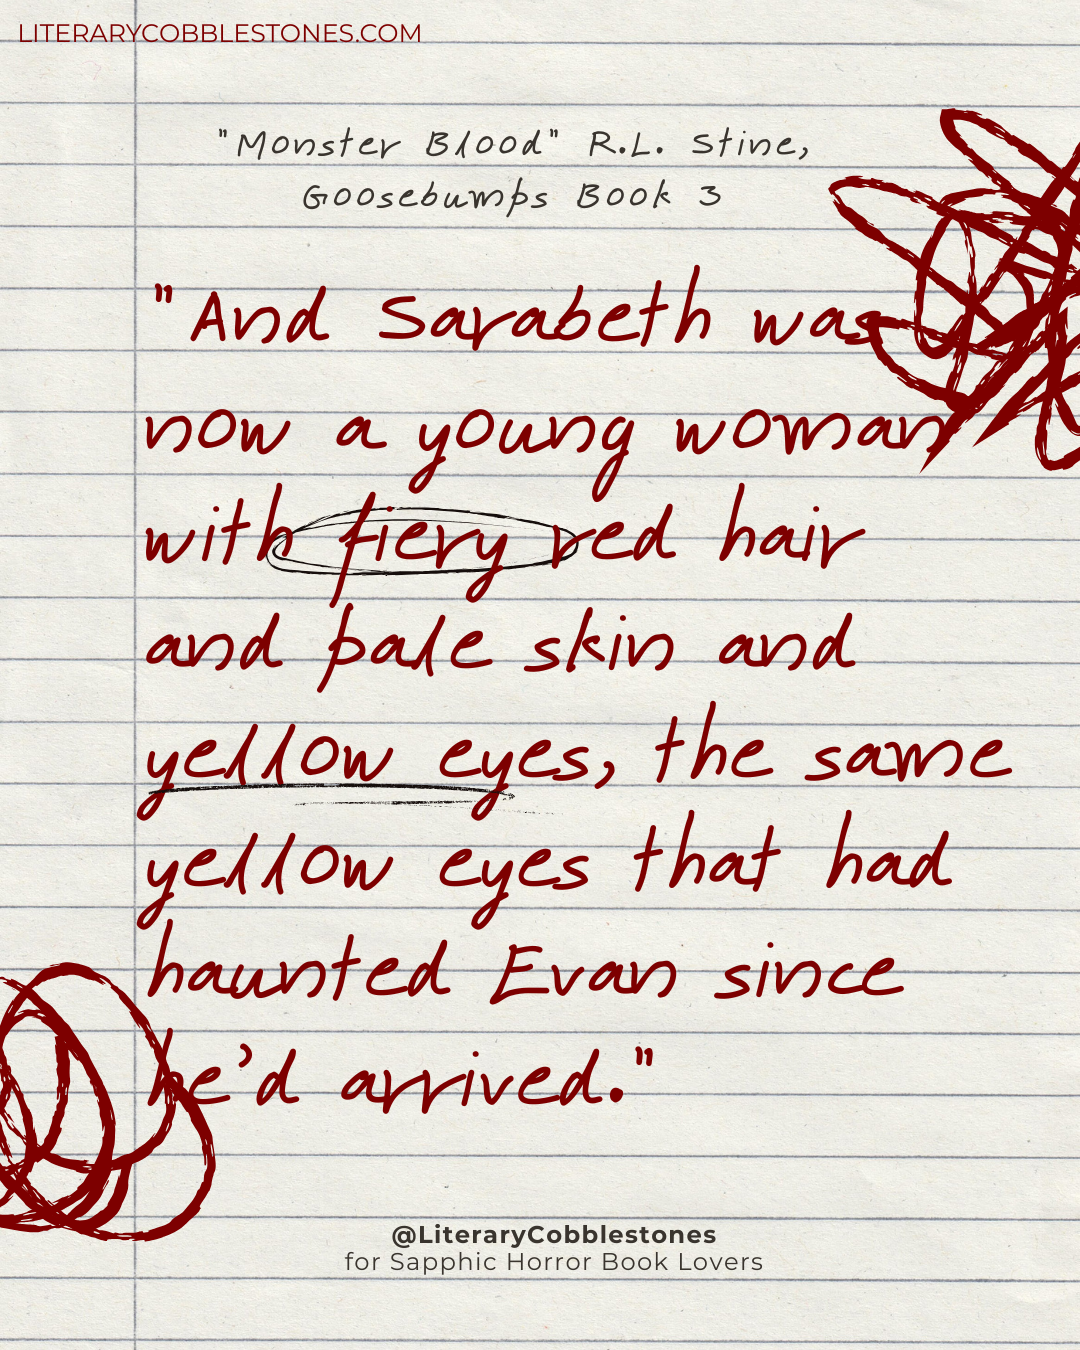 LITERARYCOBBLESTONES.COM
"Monster Blood" R.L. Stine,
Goosebumps Book 3
"And Sarabeth was
now a young woman
with fiery red hair
and pale skin and
yellow eyes, the same
yellow eyes that had
haunted Evan since
he'd arrived."
@LiteraryCobblestones
for Sapphic Horror Book Lovers